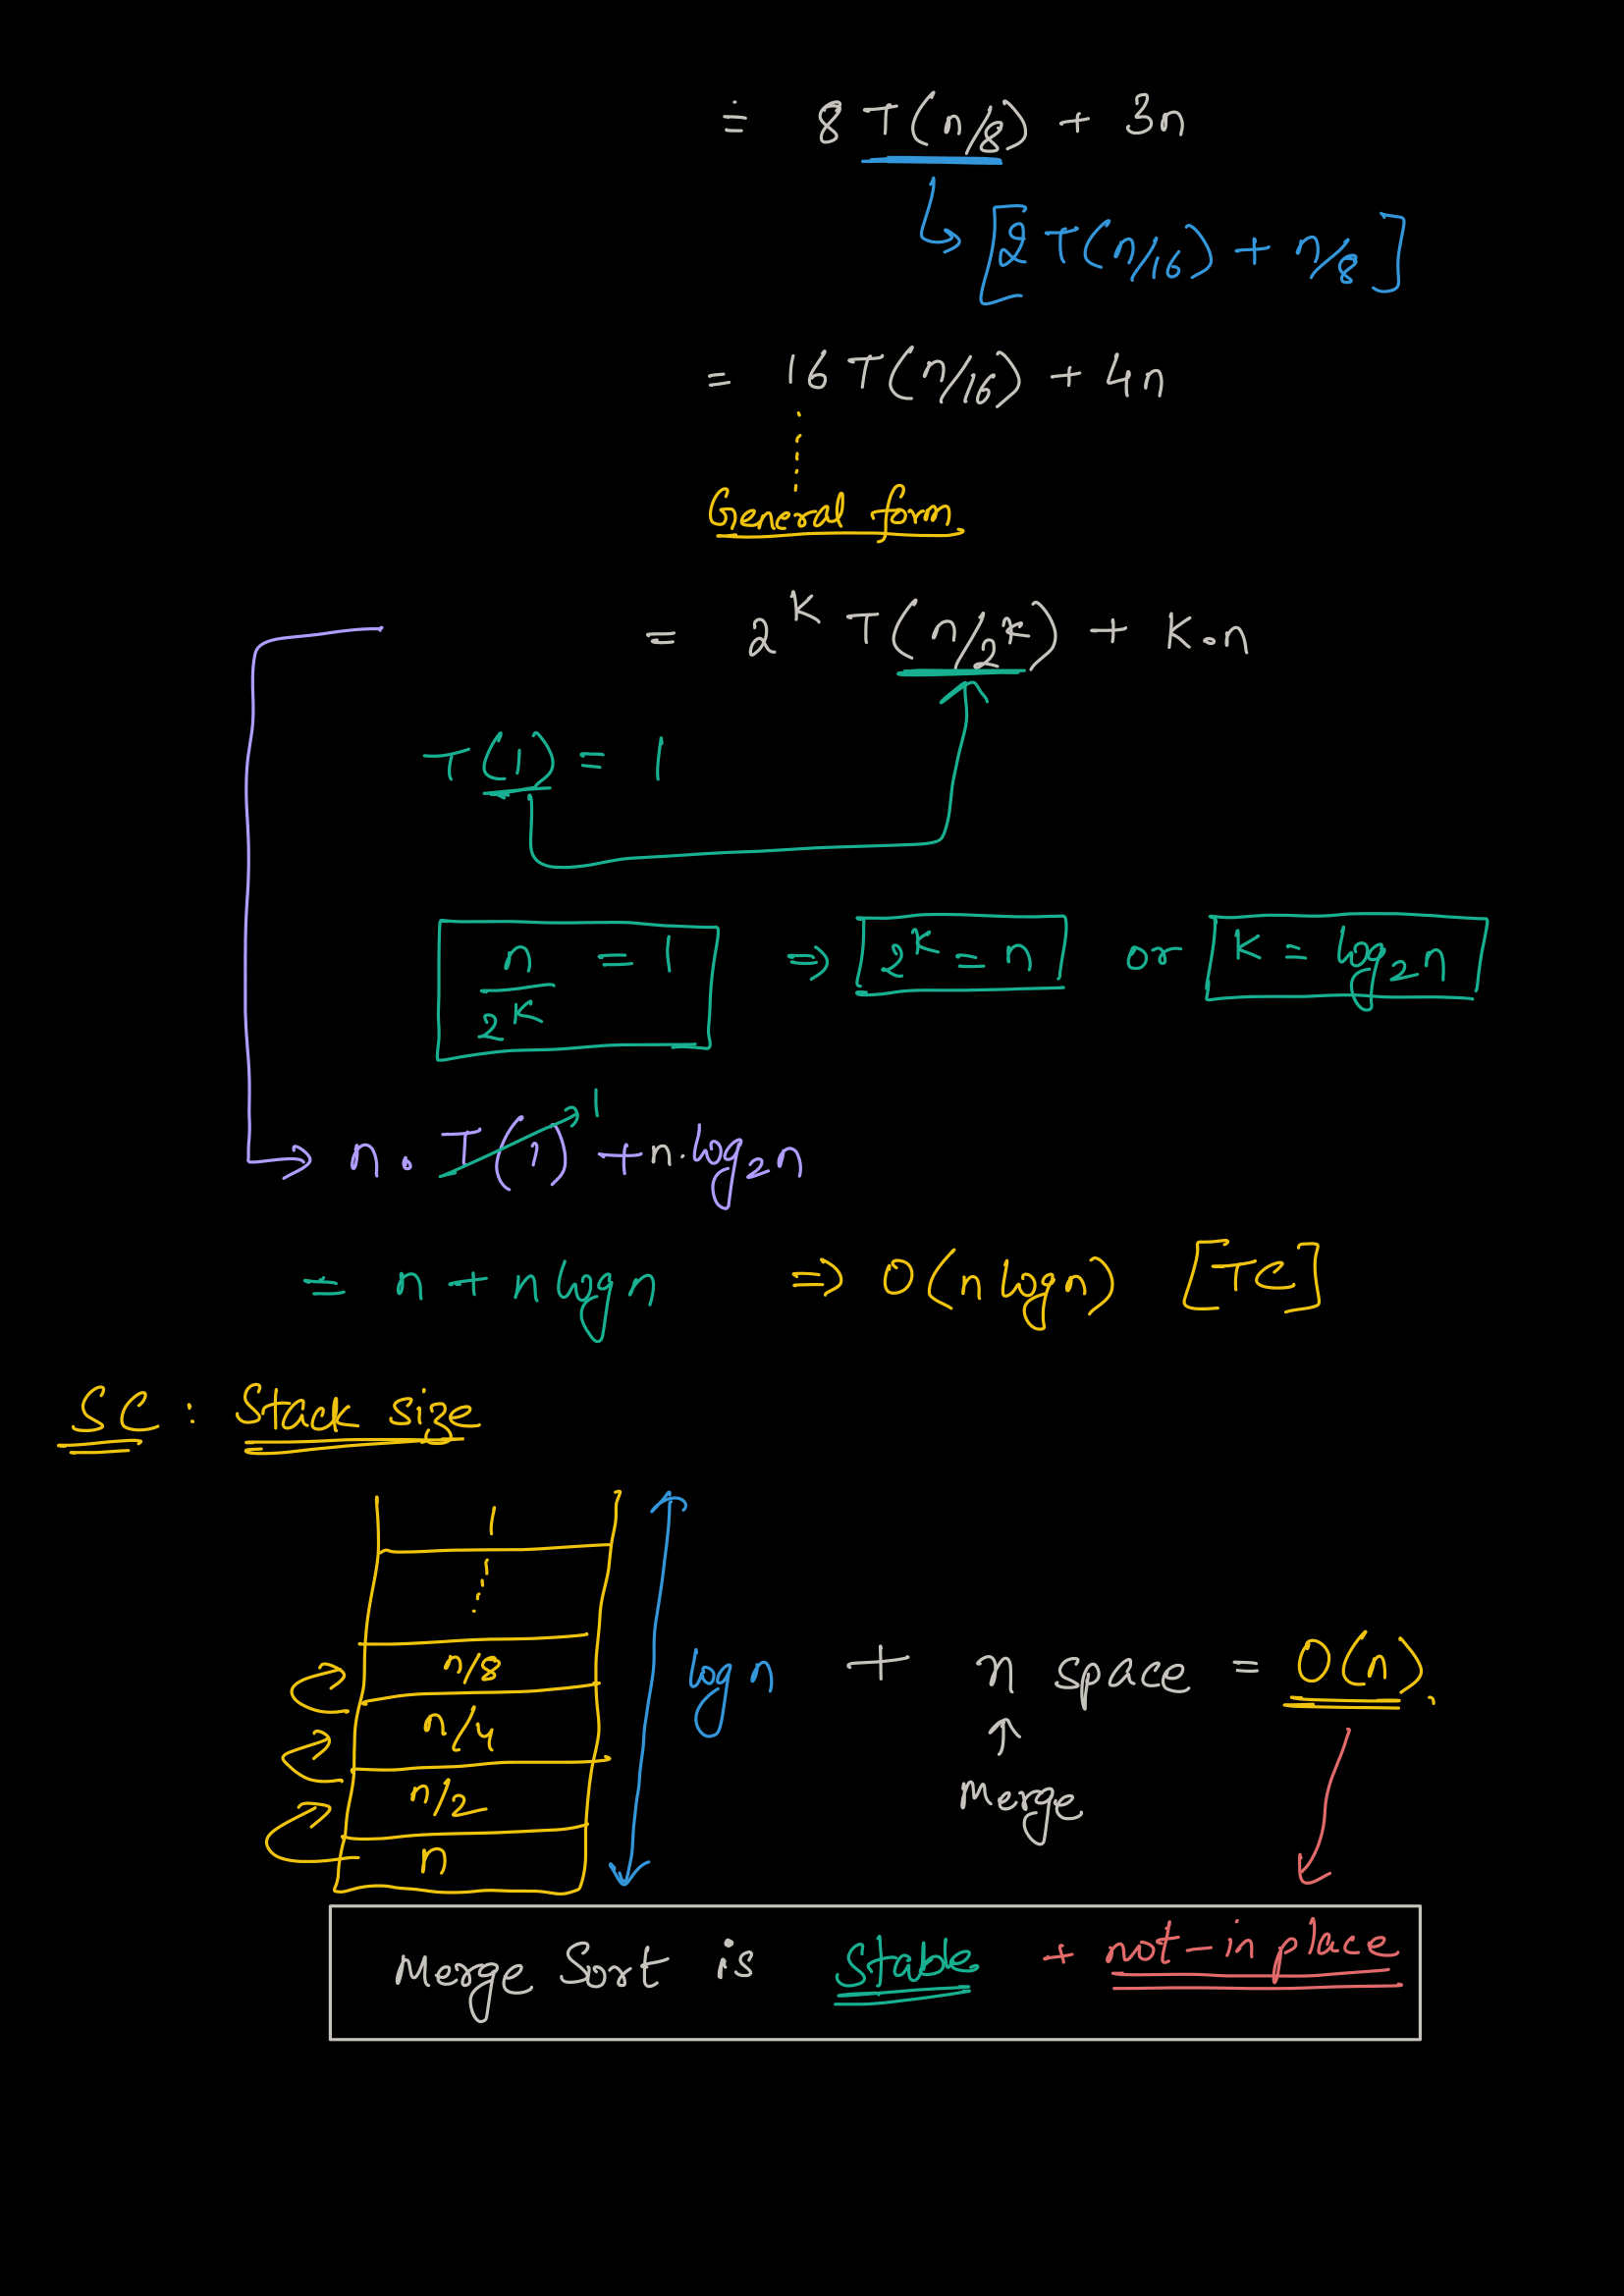 = 8 T(n/8) + 3n
[2 T(n/16) + n/8]
= 16 T(n/16) + 4n
General form
= 2^K T(n/2^K) + K.n
T(1) = 1
n/2^K = 1 ⇒ 2^K = n or K = log₂n
n . T(1) 1 + n.log₂n
= n + n log n ⇒ O(n log n) [TC]
SC : Stack size
1
n/8
log n + n space = O(n).
n/4
n/2
Merge
n
Merge Sort is Stable + not-in place